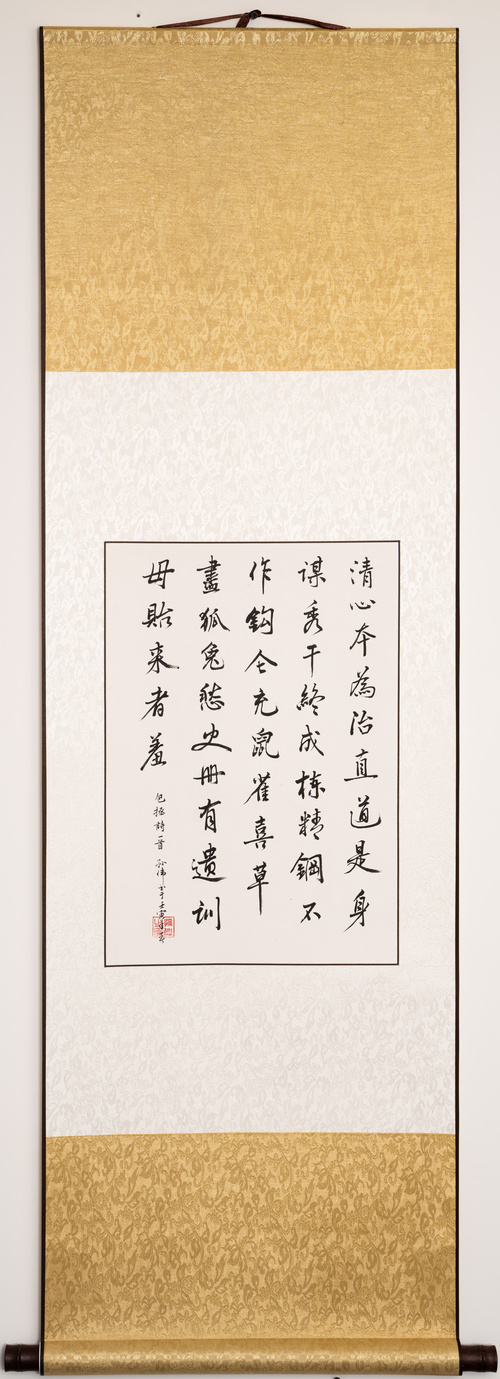 清心本為治直道是身
謀秀干終成栋精鋼不
作鈎仓充鼠雀喜草
盡狐兔愁史册有遺訓
毋貽来者羞
包拯詩一首 孙伟书于壬寅年